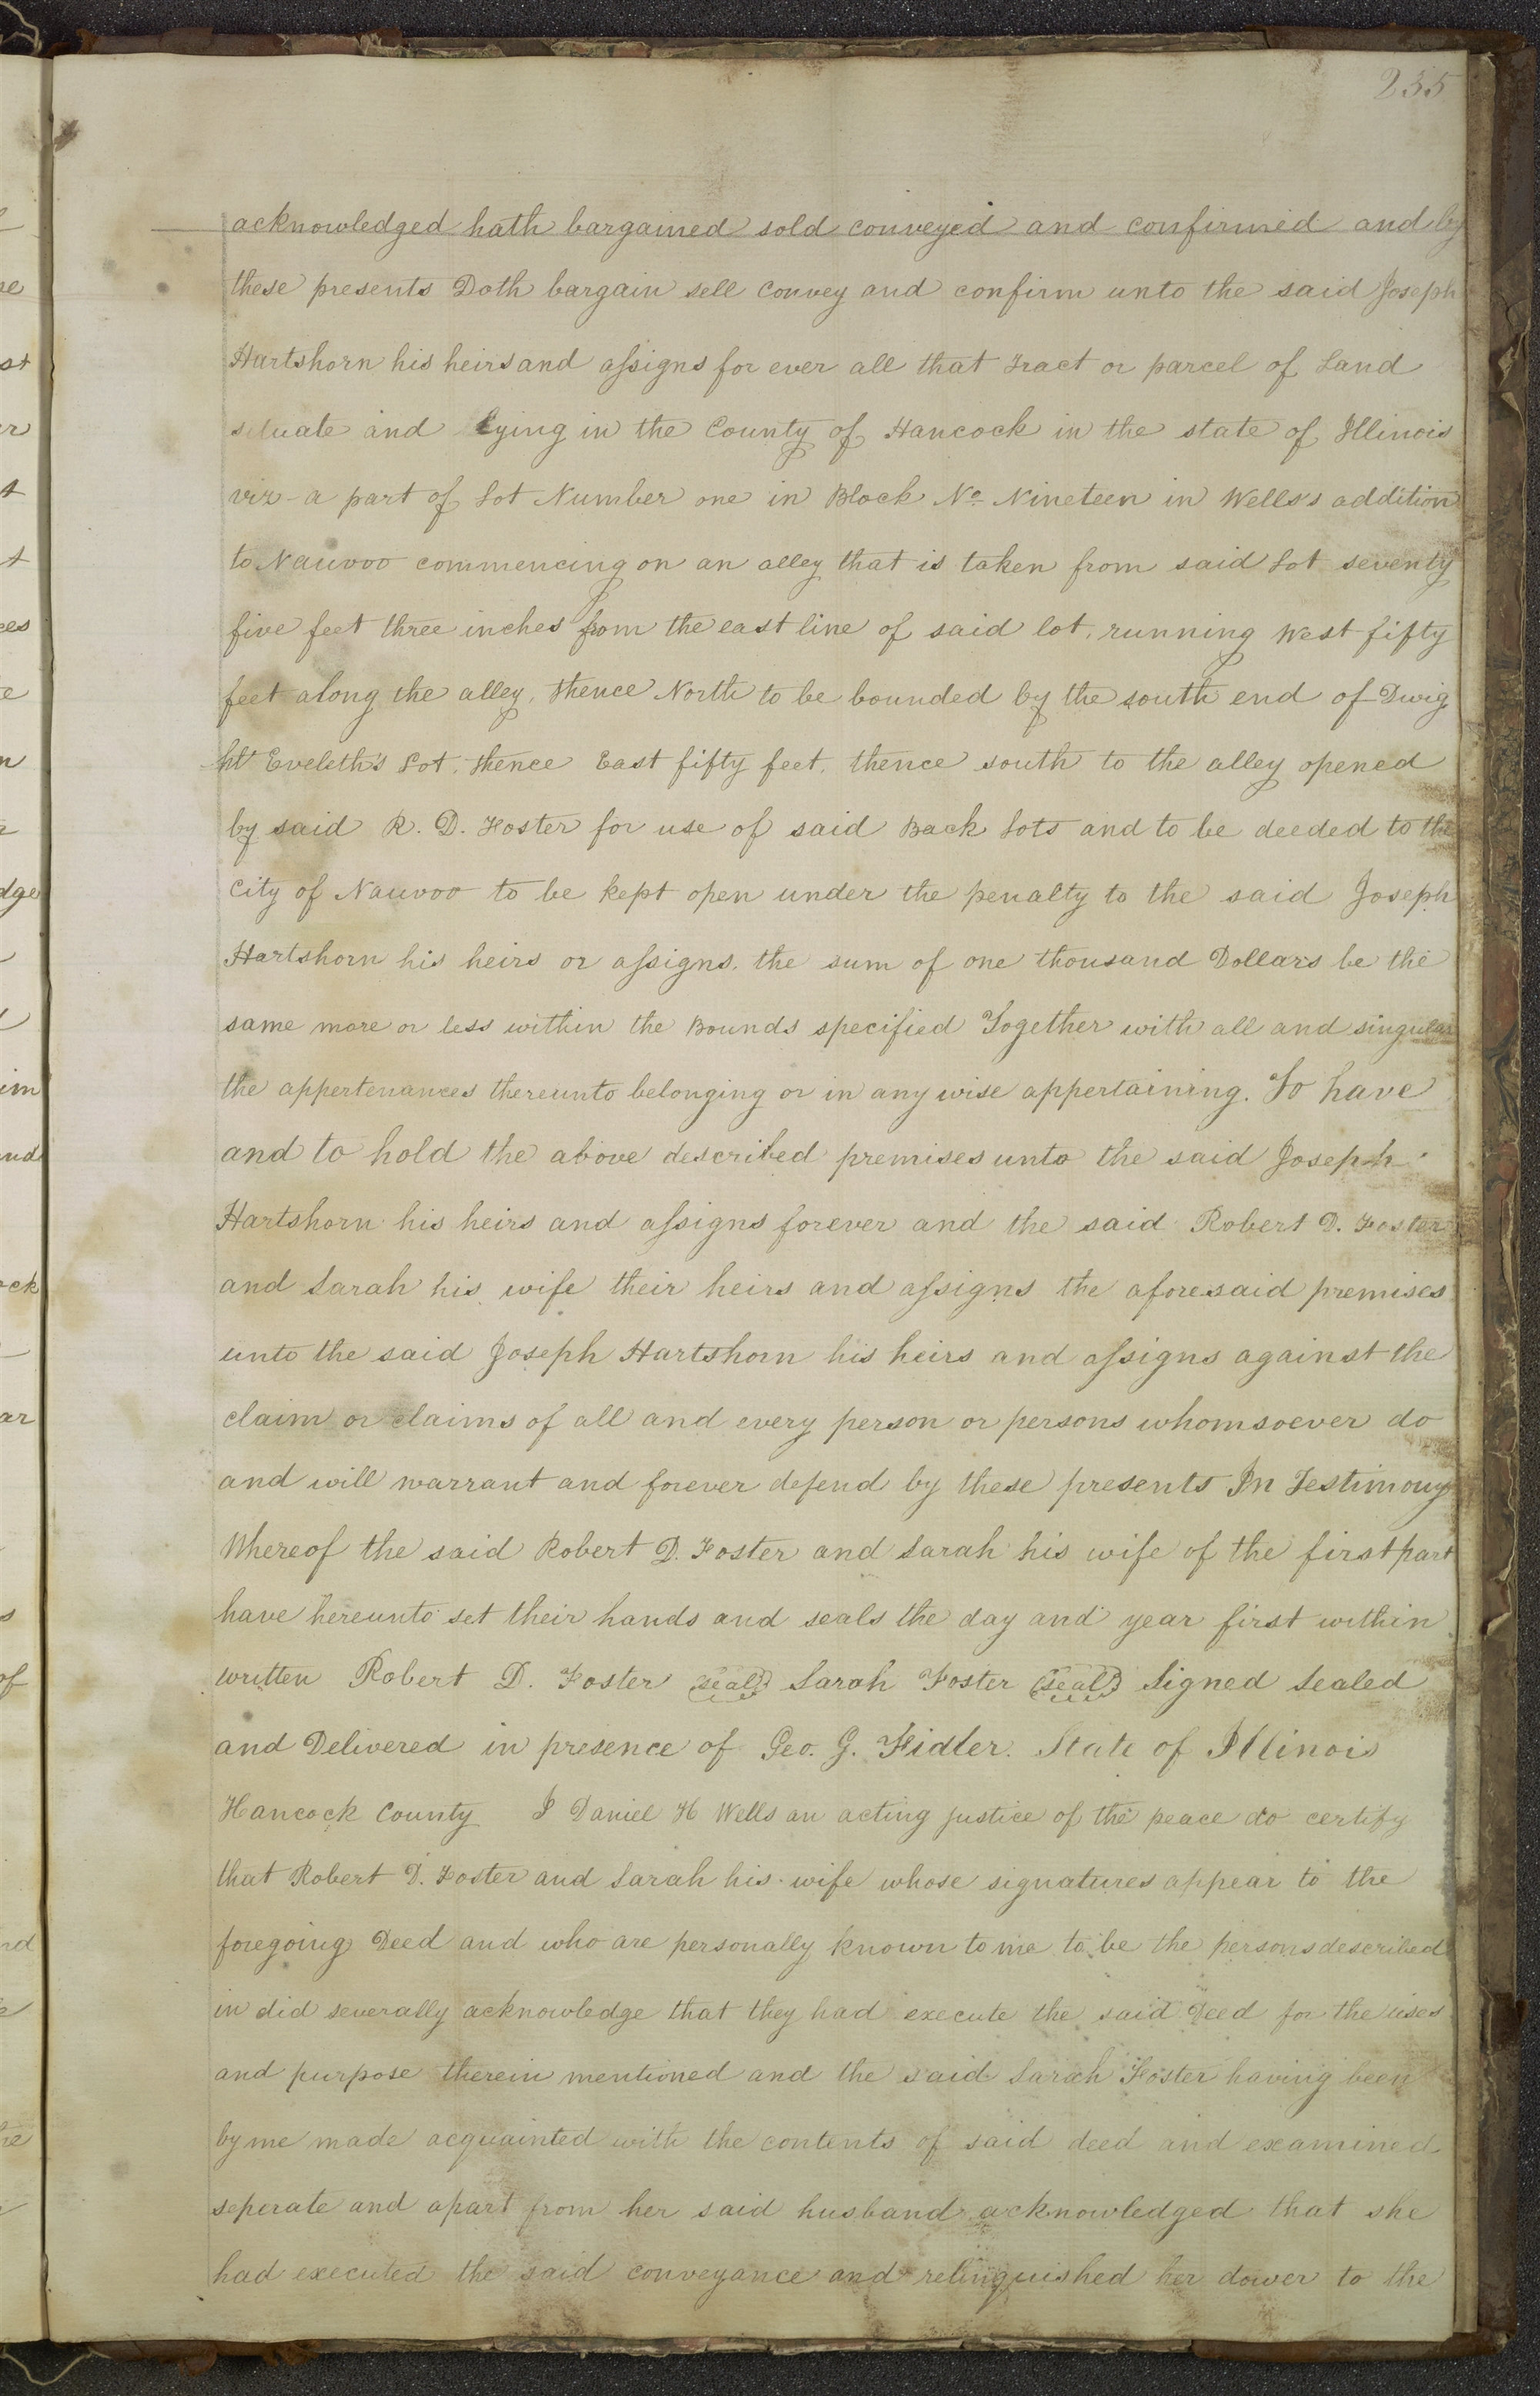 235
acknowledged hath bargained sold conveyed and confirmed and by
these presents Doth bargain sell convey and confirm unto the said Joseph
Hartshorn his heirs and assigns for ever all that tract or parcel of Land
situate and lying in the County of Hancock in the state of Illinois
viz - a part of Lot Number one in Block No. Nineteen in Wells's addition
to Nauvoo commencing on an alley that is taken from said Lot seventy
five feet three inches from the east line of said lot, running West fifty
feet along the alley, thence North to be bounded by the south end of Dwig
ht Eveleth's Lot, thence East fifty feet, thence south to the alley opened
by said R. D. Foster for use of said Back Lots and to be deeded to the
City of Nauvoo to be kept open under the penalty to the said Joseph
Hartshorn his heirs or assigns, the sum of one thousand Dollars be the
same more or less within the Bounds specified Together with all and singular
the appertenances thereunto belonging or in any wise appertaining. To have
and to hold the above described premises unto the said Joseph
Hartshorn his heirs and assigns forever and the said Robert D. Foster
and Sarah his wife their heirs and assigns the aforesaid premises
unto the said Joseph Hartshorn his heirs and assigns against the
claim or claims of all and every person or persons whomsoever do
and will warrant and forever defend by these presents In Testimony
Whereof the said Robert D. Foster and Sarah his wife of the first part
have hereunto set their hands and seals the day and year first within
written Robert D. Foster (seal) Sarah Foster (seal) Signed Sealed
and Delivered in presence of Geo. G. Fidler. State of Illinois
Hancock County I Daniel H Wells an acting justice of the peace do certify
that Robert D. Foster and Sarah his wife whose signatures appear to the
foregoing Deed and who are personally known to me to be the persons described
in did severally acknowledge that they had execute the said Deed for the uses
and purpose therein mentioned and the said Sarah Foster having been
by me made acquainted with the contents of said deed and examined
seperate and apart from her said husband acknowledged that she
had executed the said conveyance and relinquished her dower to the